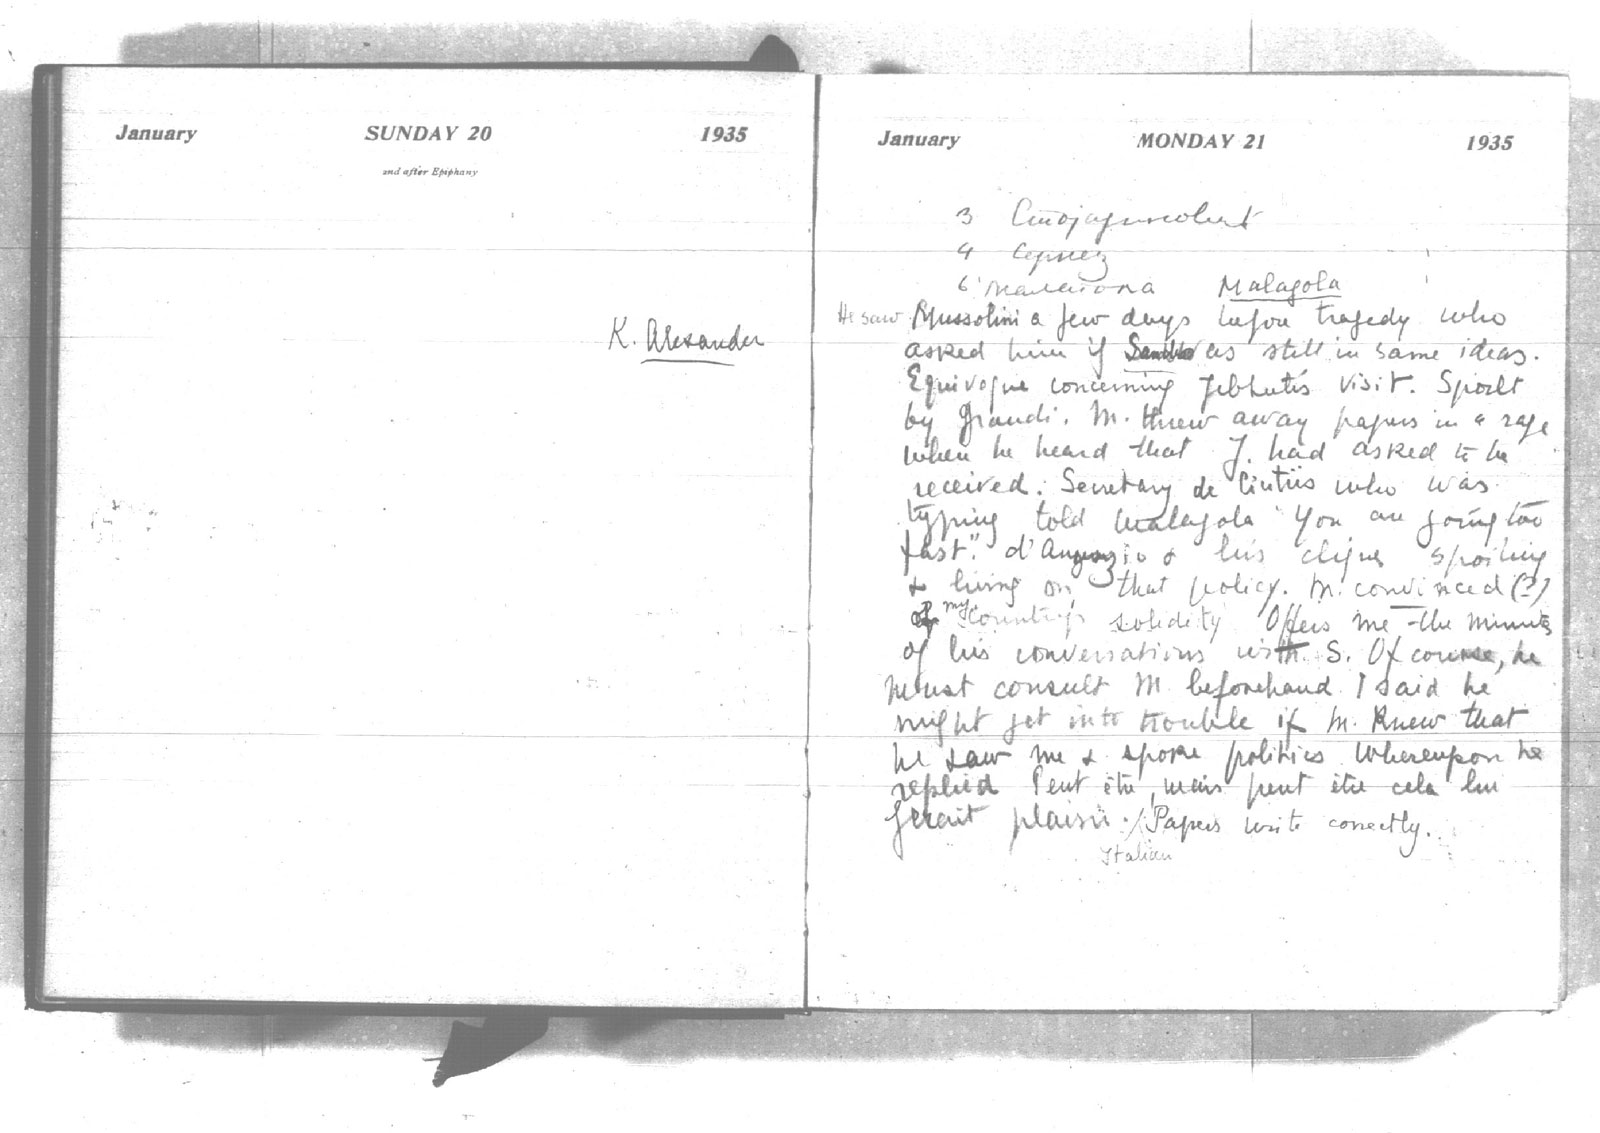 January SUNDAY 20 1935
2nd after Epiphany
K. Alexander
January MONDAY 21 1935
3
4
6 Малагола Malagola
He saw Mussolini a few days before tragedy who
asked him if was still in same ideas.
Equivoque concerning Jebhutis visit. Spoilt
by Grandi. M. threw away papers in a rage
when he heard that J. had asked to be
received. Secretary de Cintiis who was
typing told Malagola "You are going too
fast". d'Annunzio & his clique spoiling
& living on that policy. M. convinced (?)
of my Country's solidity Offers me the minutes
of his conversations with S. Of course, he
must consult M beforehand. I said he
might get into trouble if M. Knew that
he saw me & spoke politics Whereupon he
replied Peut être, mais peut être cela lui
ferait plaisir. / Papers write correctly.
Italian